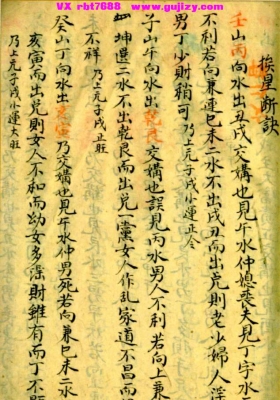 VX rbt7688 www.gujizy.com
挨星断訣
壬山丙向水出丑戌交媾也見午水仲媳喪夫見丁字水
不利若向兼運巳未二水不出戌丑而出兌則老少婦人淫
男丁少財稍可 乃上元子戌小運正令
子山午向水出乾艮交媾也誤見丙水男人不利若向上兼
坤選二水不出乾艮而出兌一黨女人作乱家道不昌而
不祥 乃上元子戌正旺
癸山丁向水出亥寅乃交媾也見午水仲男死若向兼巳未二水
亥寅而出兌則女人不和而幼女多淫財雖有而丁不
乃上元子戌小運大旺